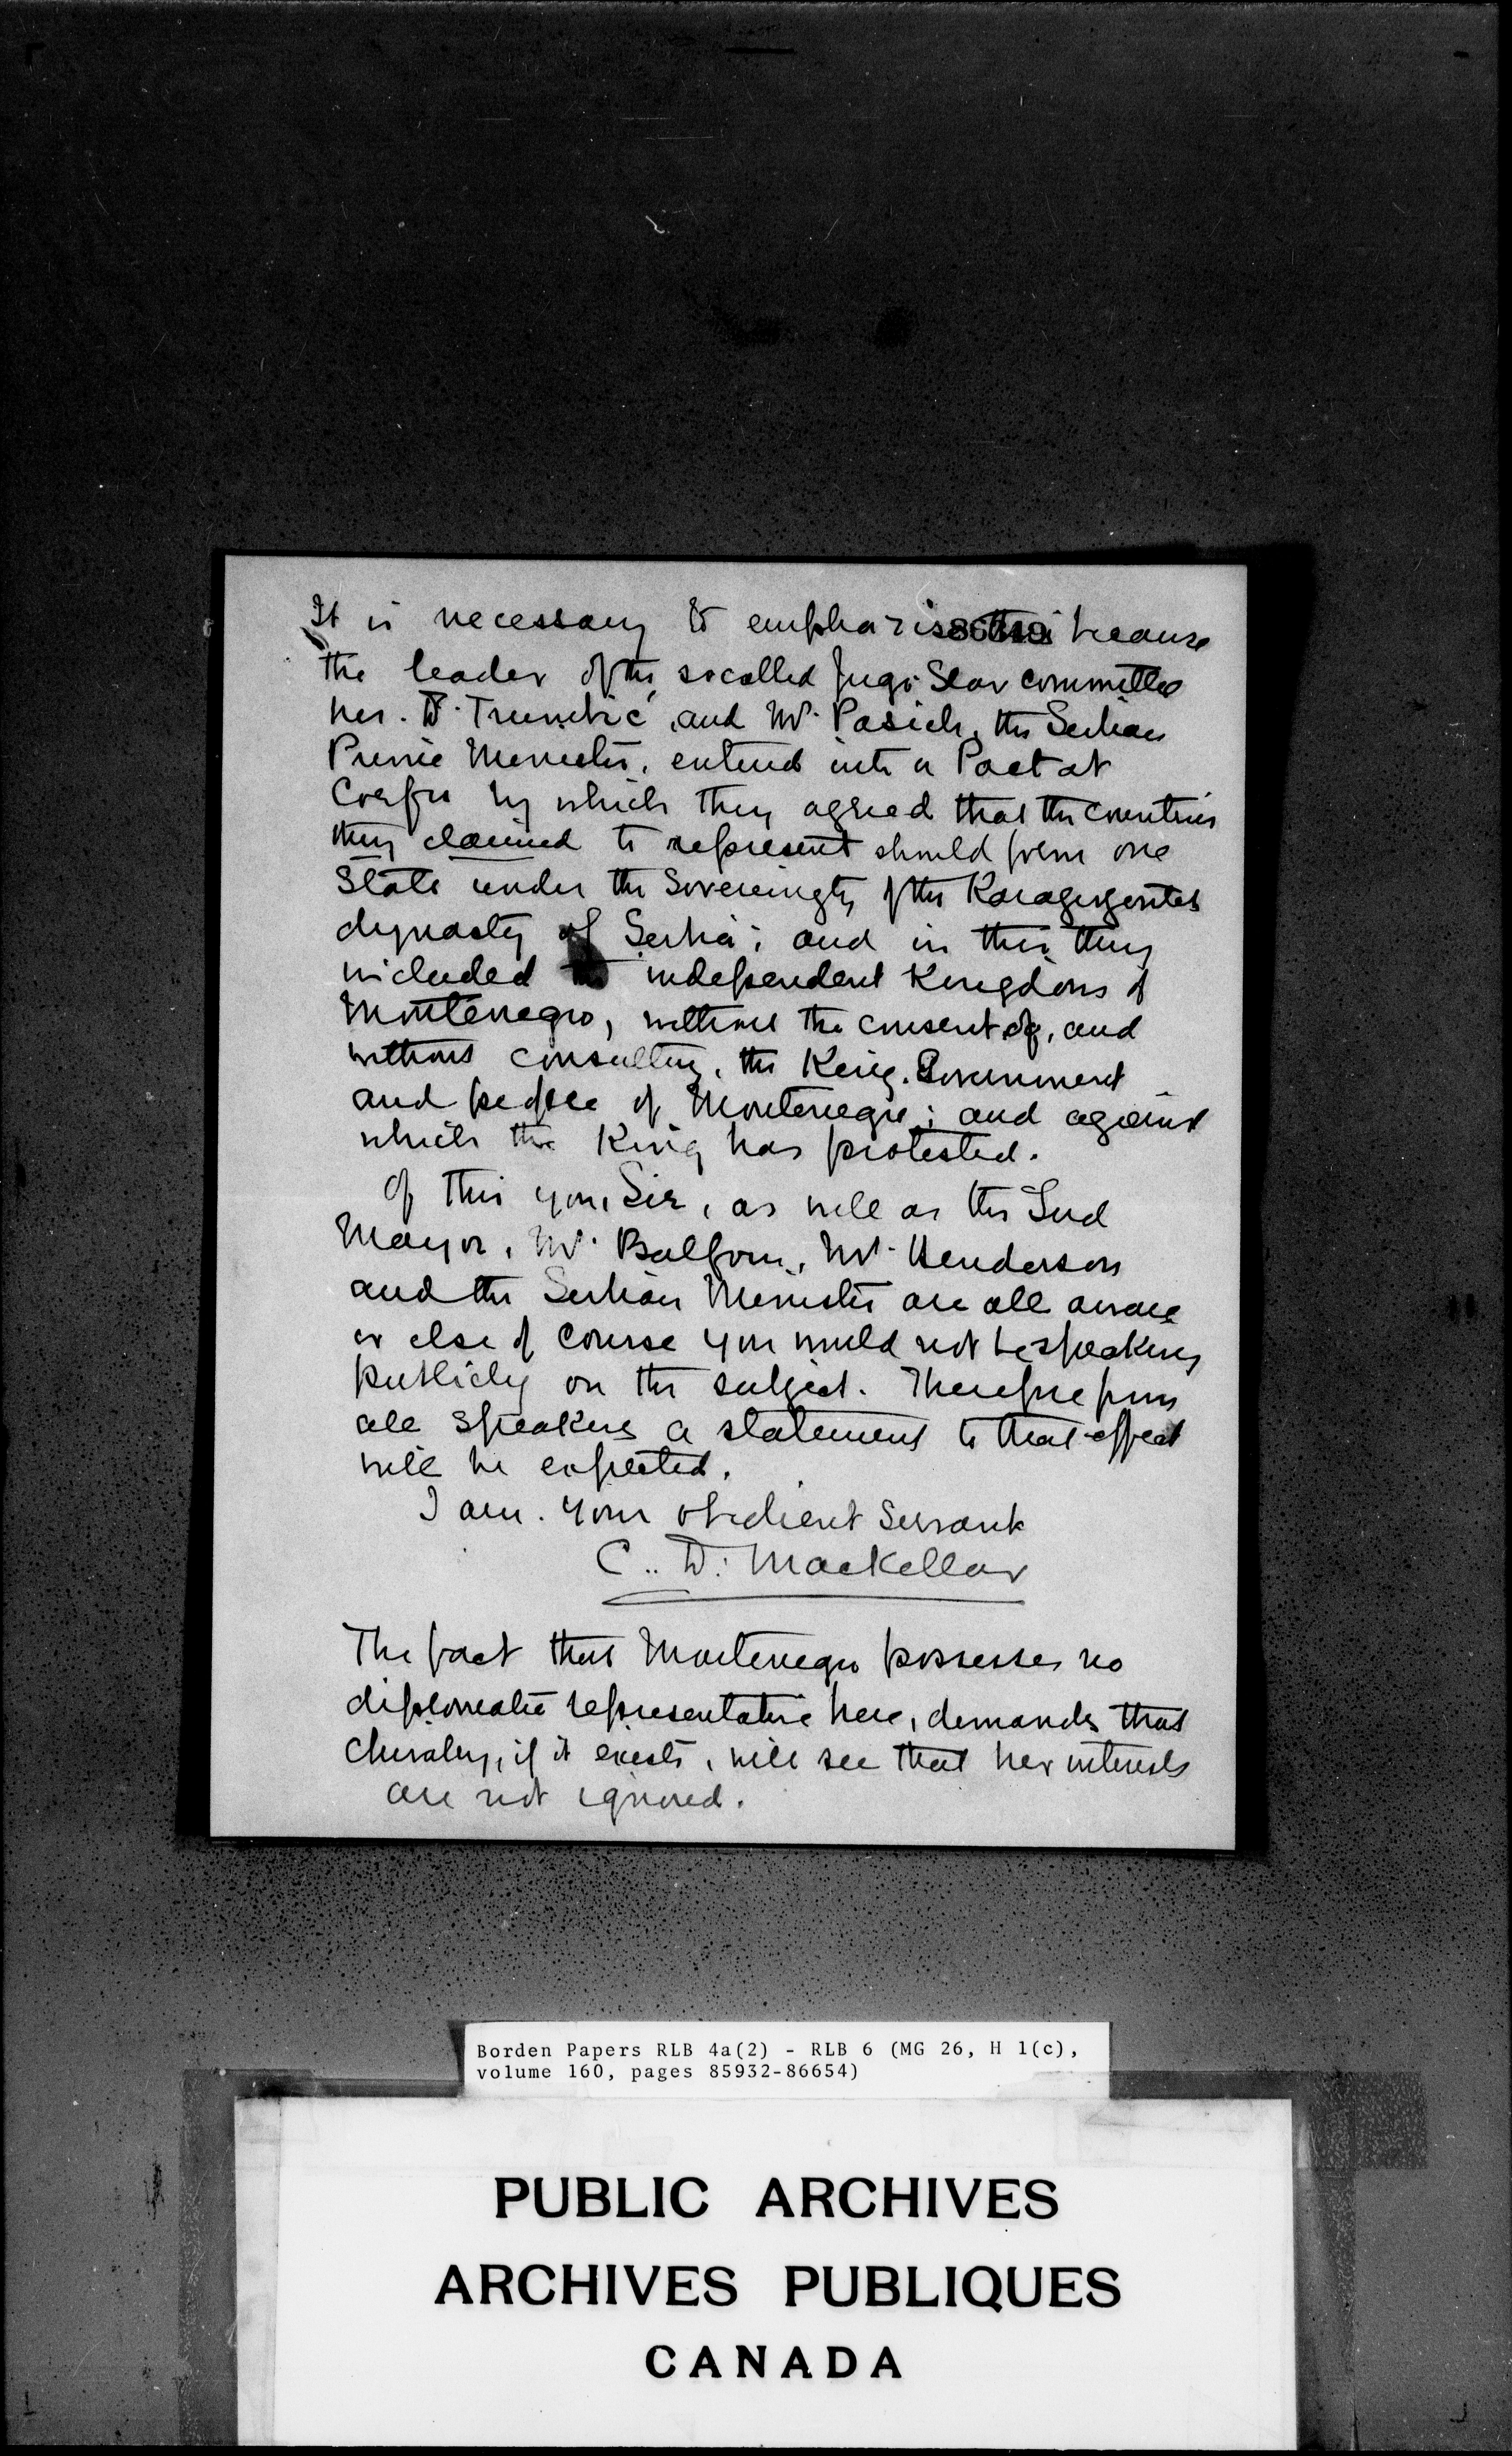 It is necessary to emphasise this because
86649
the leader of the socalled Jugo-Slav committee
here. Dr. Trumbic, and Mr. Pasich, the Serbian
Prime Minister, entered into a Pact at
Corfu by which they agreed that the countries
they claimed to represent should form one
State under the Sovereignty of the Karageorgevitch
dynasty of Serbia; and in this they
included the independent Kingdom of
Montenegro, without the consent of, and
without consulting, the King, Government
and people of Montenegro; and against
which the King has protested.
Of this you, Sir, as well as the Lord
Mayor, Mr. Balfour, Mr. Henderson
and the Serbian Minister are all aware
or else of course you would not be speaking
publicly on the subject. Therefore from
all speakers a statement to that effect
will be expected.
I am. Your obedient Servant
C. D. Mackellar
The fact that Montenegro possesses no
diplomatic representative here, demands that
chivalry, if it exists, will see that her interests
are not ignored.
Borden Papers RLB 4a(2) - RLB 6 (MG 26, H 1(c),
volume 160, pages 85932-86654)
PUBLIC ARCHIVES
ARCHIVES PUBLIQUES
CANADA